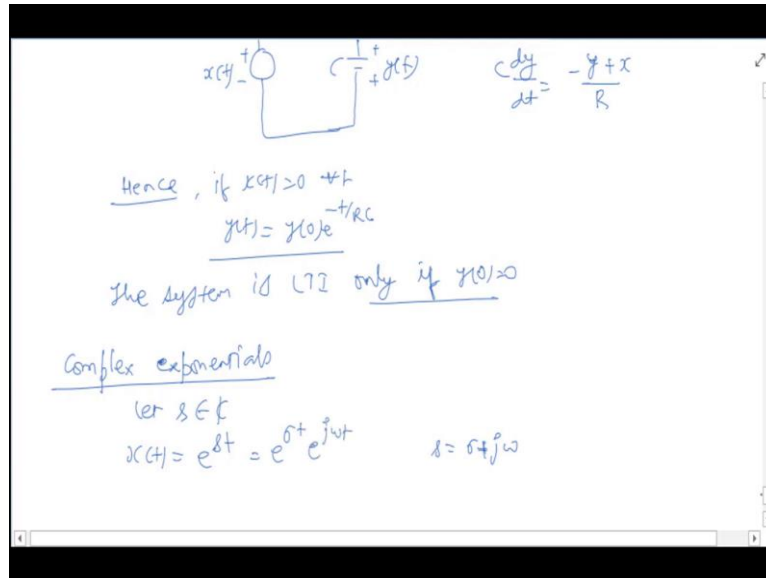 x(t) + - C + + y(t) C dy/dt = -y+x/R
Hence, if x(t)=0 ∀t
y(t) = y(0)e^{-t/RC}
The system is LTI only if y(0)=0
Complex exponentials
Let s ∈ ℂ
x(t) = e^{st} = e^{σt} e^{jωt} s = σ+jω